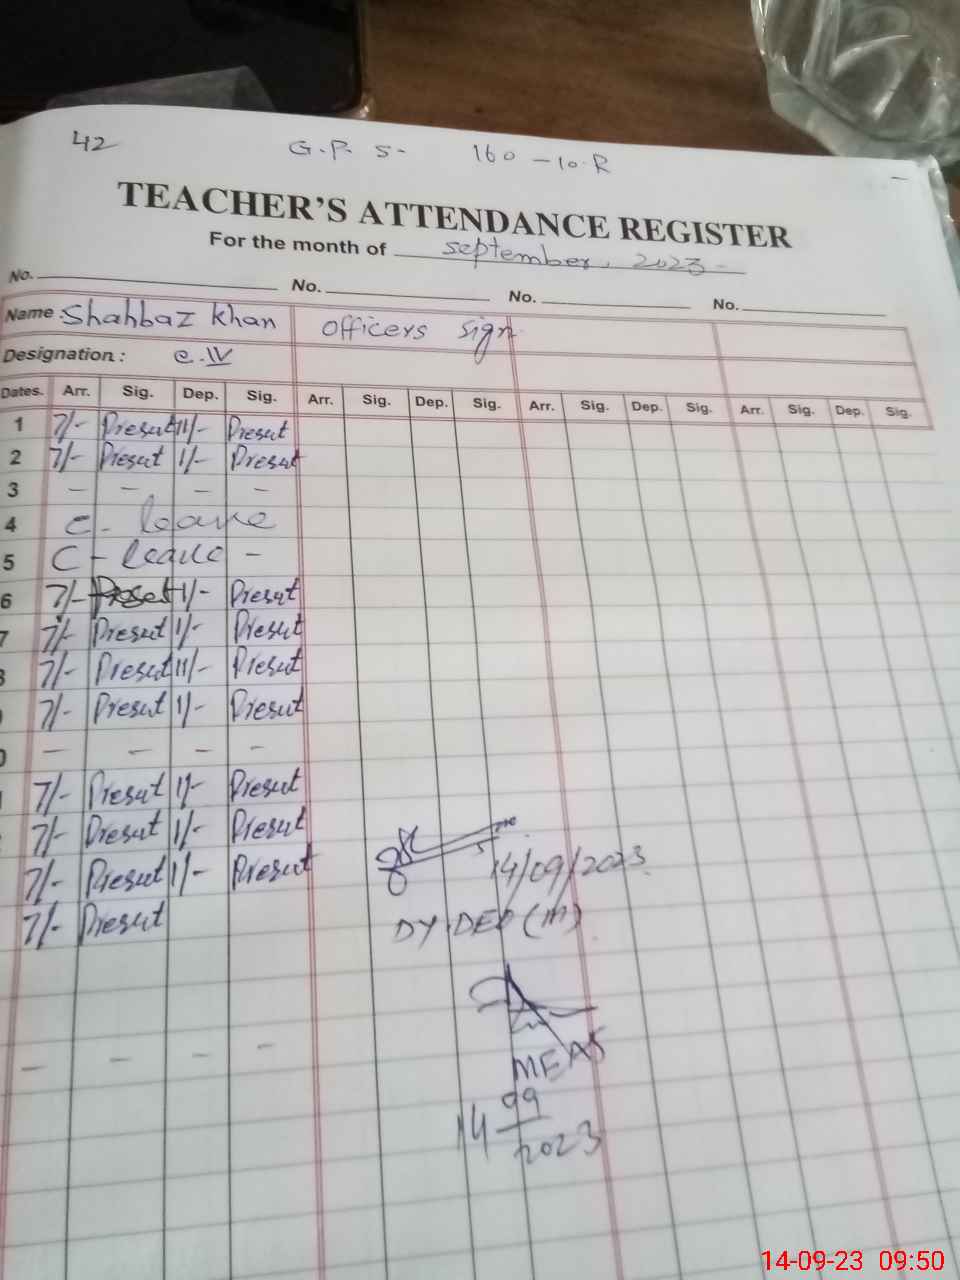 42
G.P.S. 160-10.R
TEACHER'S ATTENDANCE REGISTER
For the month of September, 2023
No. No. No. No.
Name: Shahbaz Khan officers sign
Designation: C.IV
Dates. Arr. Sig. Dep. Sig. Arr. Sig. Dep. Sig. Arr. Sig. Dep. Sig. Arr. Sig. Dep. Sig.
1 7/- Present 11/- Present
2 7/- Present 1/- Present
3 - - - -
4 C - leave
5 C - leave -
6 7/- Present 1/- Present
7 7/- Present 1/- Present
7/- Present 11/- Present
7/- Present 1/- Present
- - - -
7/- Present 1/- Present
7/- Present 1/- Present
7/- Present 1/- Present
14/09/2023
7/- Present
DY DEO (M)
MEAS
- - - -
14 09 2023
14-09-23 09:50